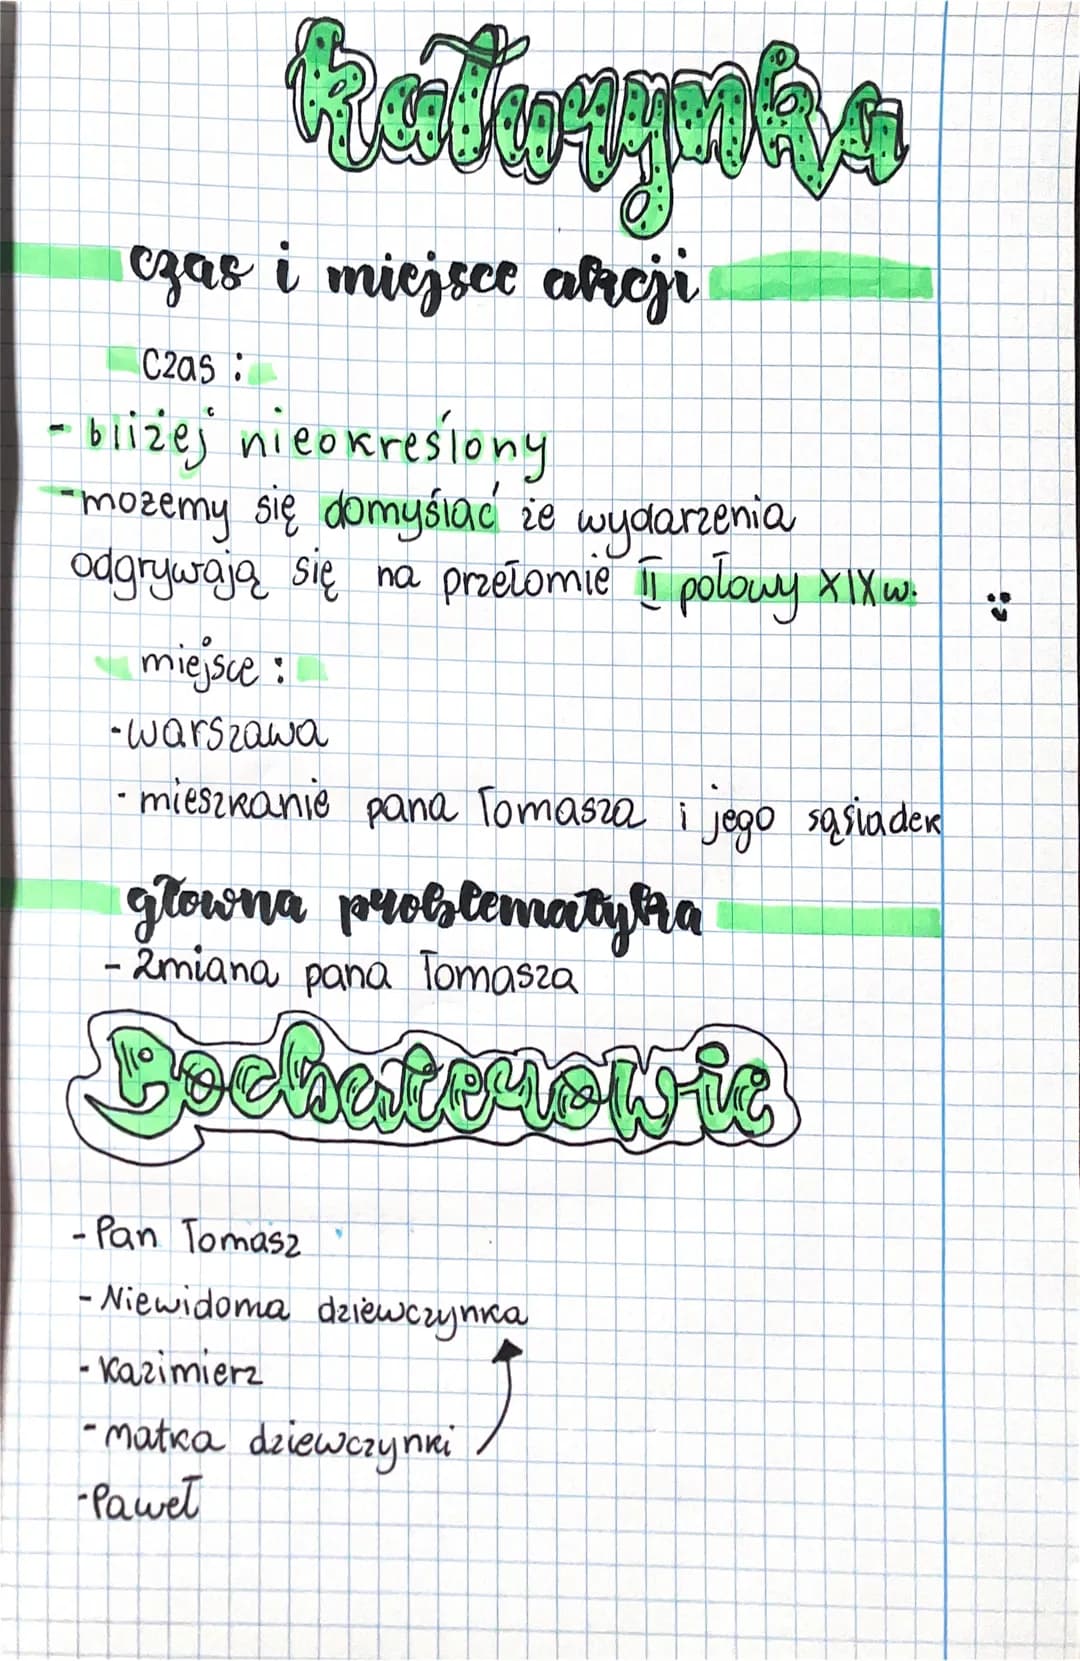 katarynka
czas i miejsce akcji
czas :
- bliżej nieokreślony
- możemy się domyślać że wydarzenia
odgrywają się na przełomie II połowy XIX w.
miejsce :
- warszawa
- mieszkanie pana Tomasza i jego sąsiadek
główna problematyka
- zmiana pana Tomasza
Bochaterowie
- Pan Tomasz
- Niewidoma dziewczynka
- Kazimierz
- matka dziewczynki
- Paweł